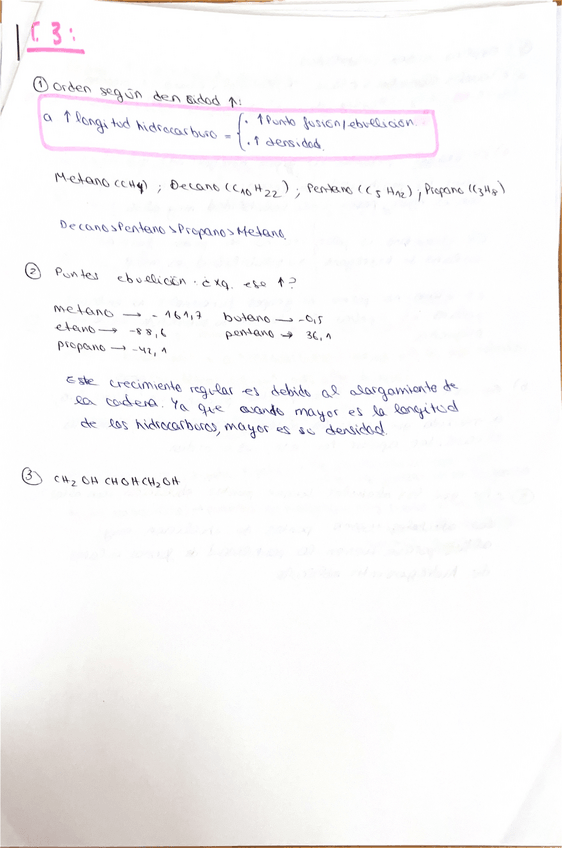 T. 3:
① Orden según densidad ↑:
a ↑ longitud hidrocarburo = { · ↑ Punto fusión/ebullición.
· ↑ densidad.
Metano (CH4) ; Decano (C10 H22) ; Pentano (C5 H12) ; Propano (C3H8)
Decano>Pentano>Propano>Metano.
② Puntos ebullición. ¿xq. eso ↑?
metano → -161,7 butano → -0,5
etano → -88,6 pentano → 36,1
propano → -42,1
Este crecimiento regular es debido al alargamiento de
la cadena. Ya que cuando mayor es la longitud
de los hidrocarburos, mayor es su densidad.
③ CH2 OH CHOH CH2OH